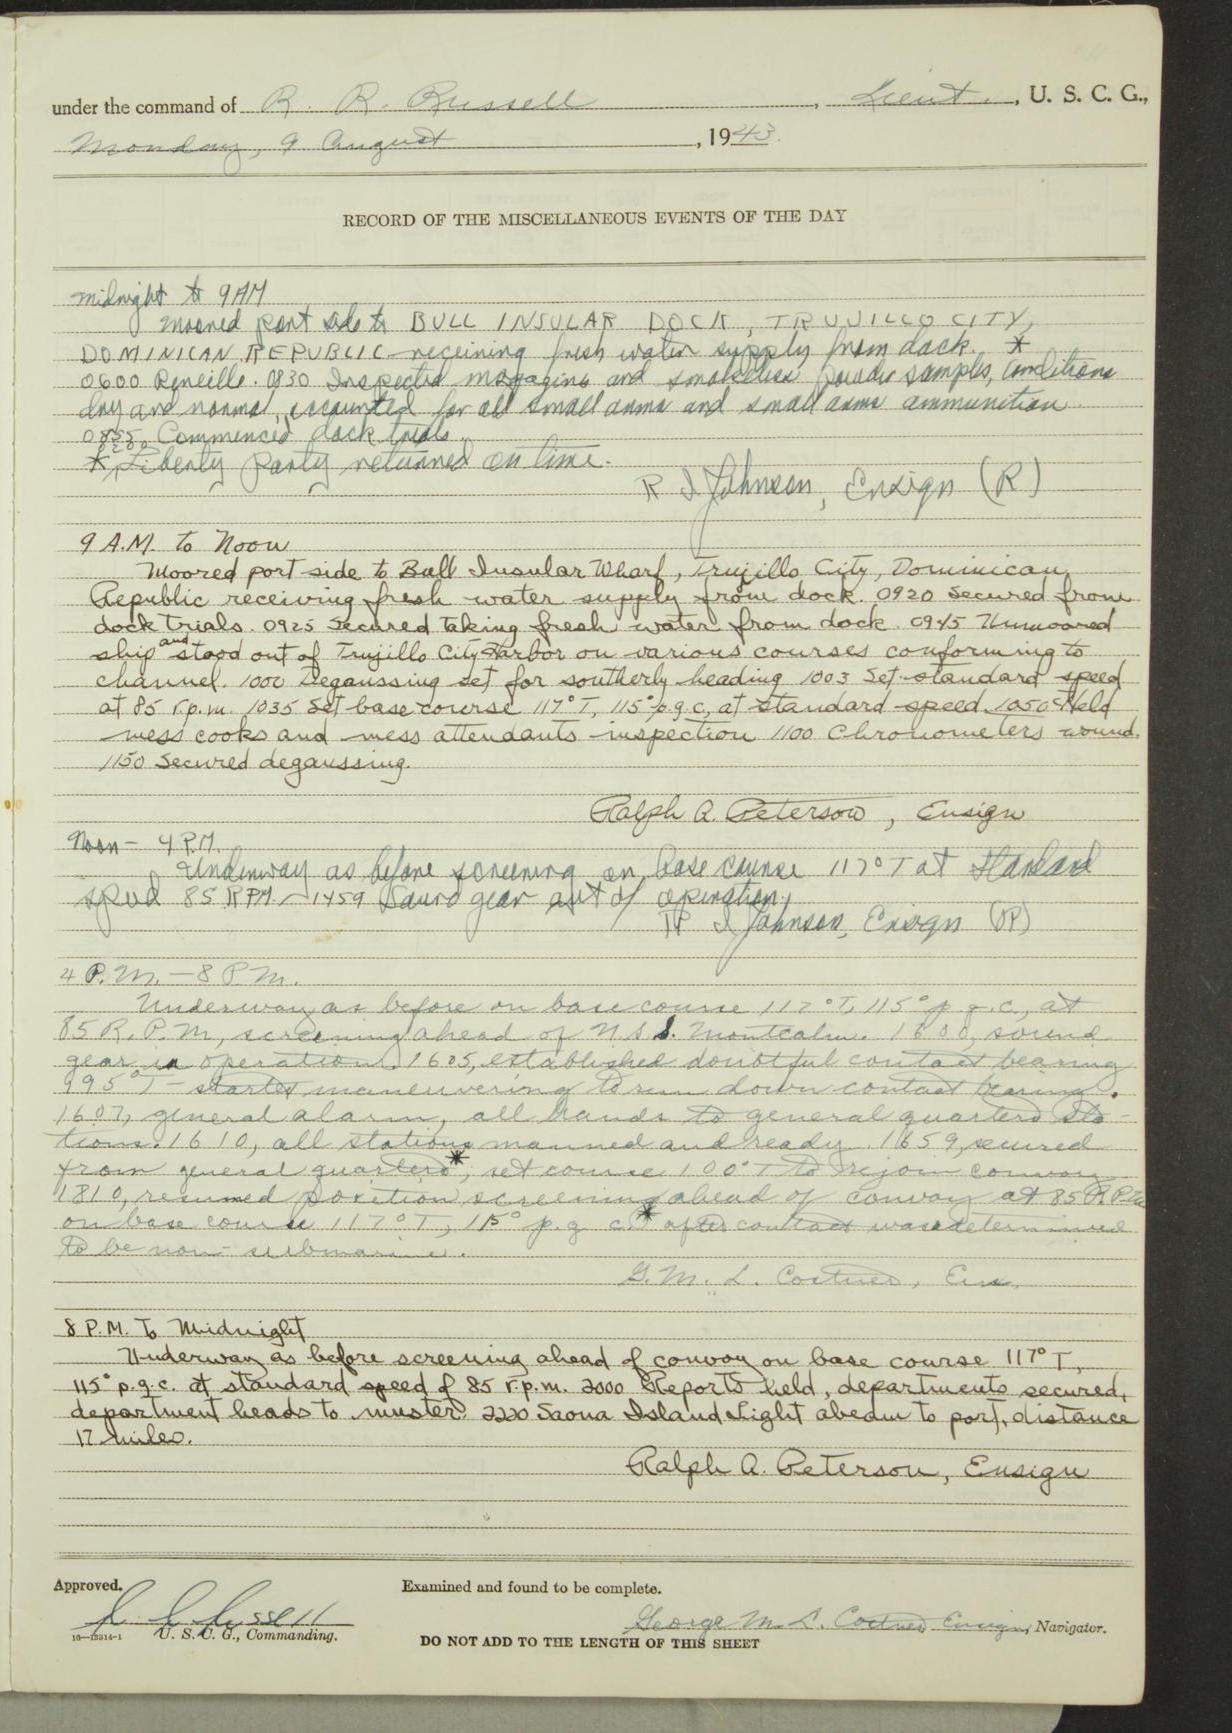 under the command of R. R. Russell, Lieut., U. S. C. G.,
Monday, 9 August, 1943.
RECORD OF THE MISCELLANEOUS EVENTS OF THE DAY
Midnight to 9 AM
Moored port side to BULL INSULAR DOCK, TRUJILLO CITY,
DOMINICAN REPUBLIC receiving fresh water supply from dock. *
0600 Reveille. 0830 Inspected magazine and smokeless powder samples, conditions
dry and normal, accounted for all small arms and small arms ammunition.
0855 Commenced dock trials.
* 0200 Liberty party returned on time.
R I Johnson, Ensign (R)
9 A.M. to Noon
Moored port side to Bull Insular Wharf, Trujillo City, Dominican
Republic receiving fresh water supply from dock. 0920 Secured from
dock trials. 0925 Secured taking fresh water from dock. 0945 Unmoored
ship and stood out of Trujillo City Harbor on various courses conforming to
channel. 1000 Degaussing set for southerly heading 1003 Set standard speed
at 85 r.p.m. 1035 Set base course 117° T, 115° p.g.c, at standard speed. 1050 Held
mess cooks and mess attendants inspection 1100 Chronometers wound.
1150 Secured degaussing.
Ralph A. Peterson, Ensign
Noon - 4 P.M.
Underway as before screening on base course 117° T at standard
speed 85 RPM. - 1459 Sound gear out of operation.
R I Johnson, Ensign (R)
4 P.M. - 8 P.M.
Underway as before on base course 117° T, 115° p.g.c., at
85 R.P.M., screening ahead of N.S.S. Montcalm. 1600, sound
gear in operation. 1605, established doubtful contact bearing
095° T - started maneuvering to run down contact bearing.
1607, general alarm, all hands to general quarters sta-
tions. 1610, all stations manned and ready. 1659, secured
from general quarters*, set course 100° T to rejoin convoy
1810, resumed position screening ahead of convoy at 85 R.P.M.
on base course 117° T, 115° p.g.c. * after contact was determined
to be non-submarine.
G. M. L. Costner, Ens.
8 P.M. to Midnight
Underway as before screening ahead of convoy on base course 117° T,
115° p.g.c. at standard speed of 85 r.p.m. 2000 Reports held, departments secured,
department heads to muster. 2220 Saona Island Light abeam to port, distance
17 miles.
Ralph A. Peterson, Ensign
Approved. Examined and found to be complete.
R R Russell George M. L. Costner Ensign, Navigator.
16-13314-1 U. S. C. G., Commanding.
DO NOT ADD TO THE LENGTH OF THIS SHEET